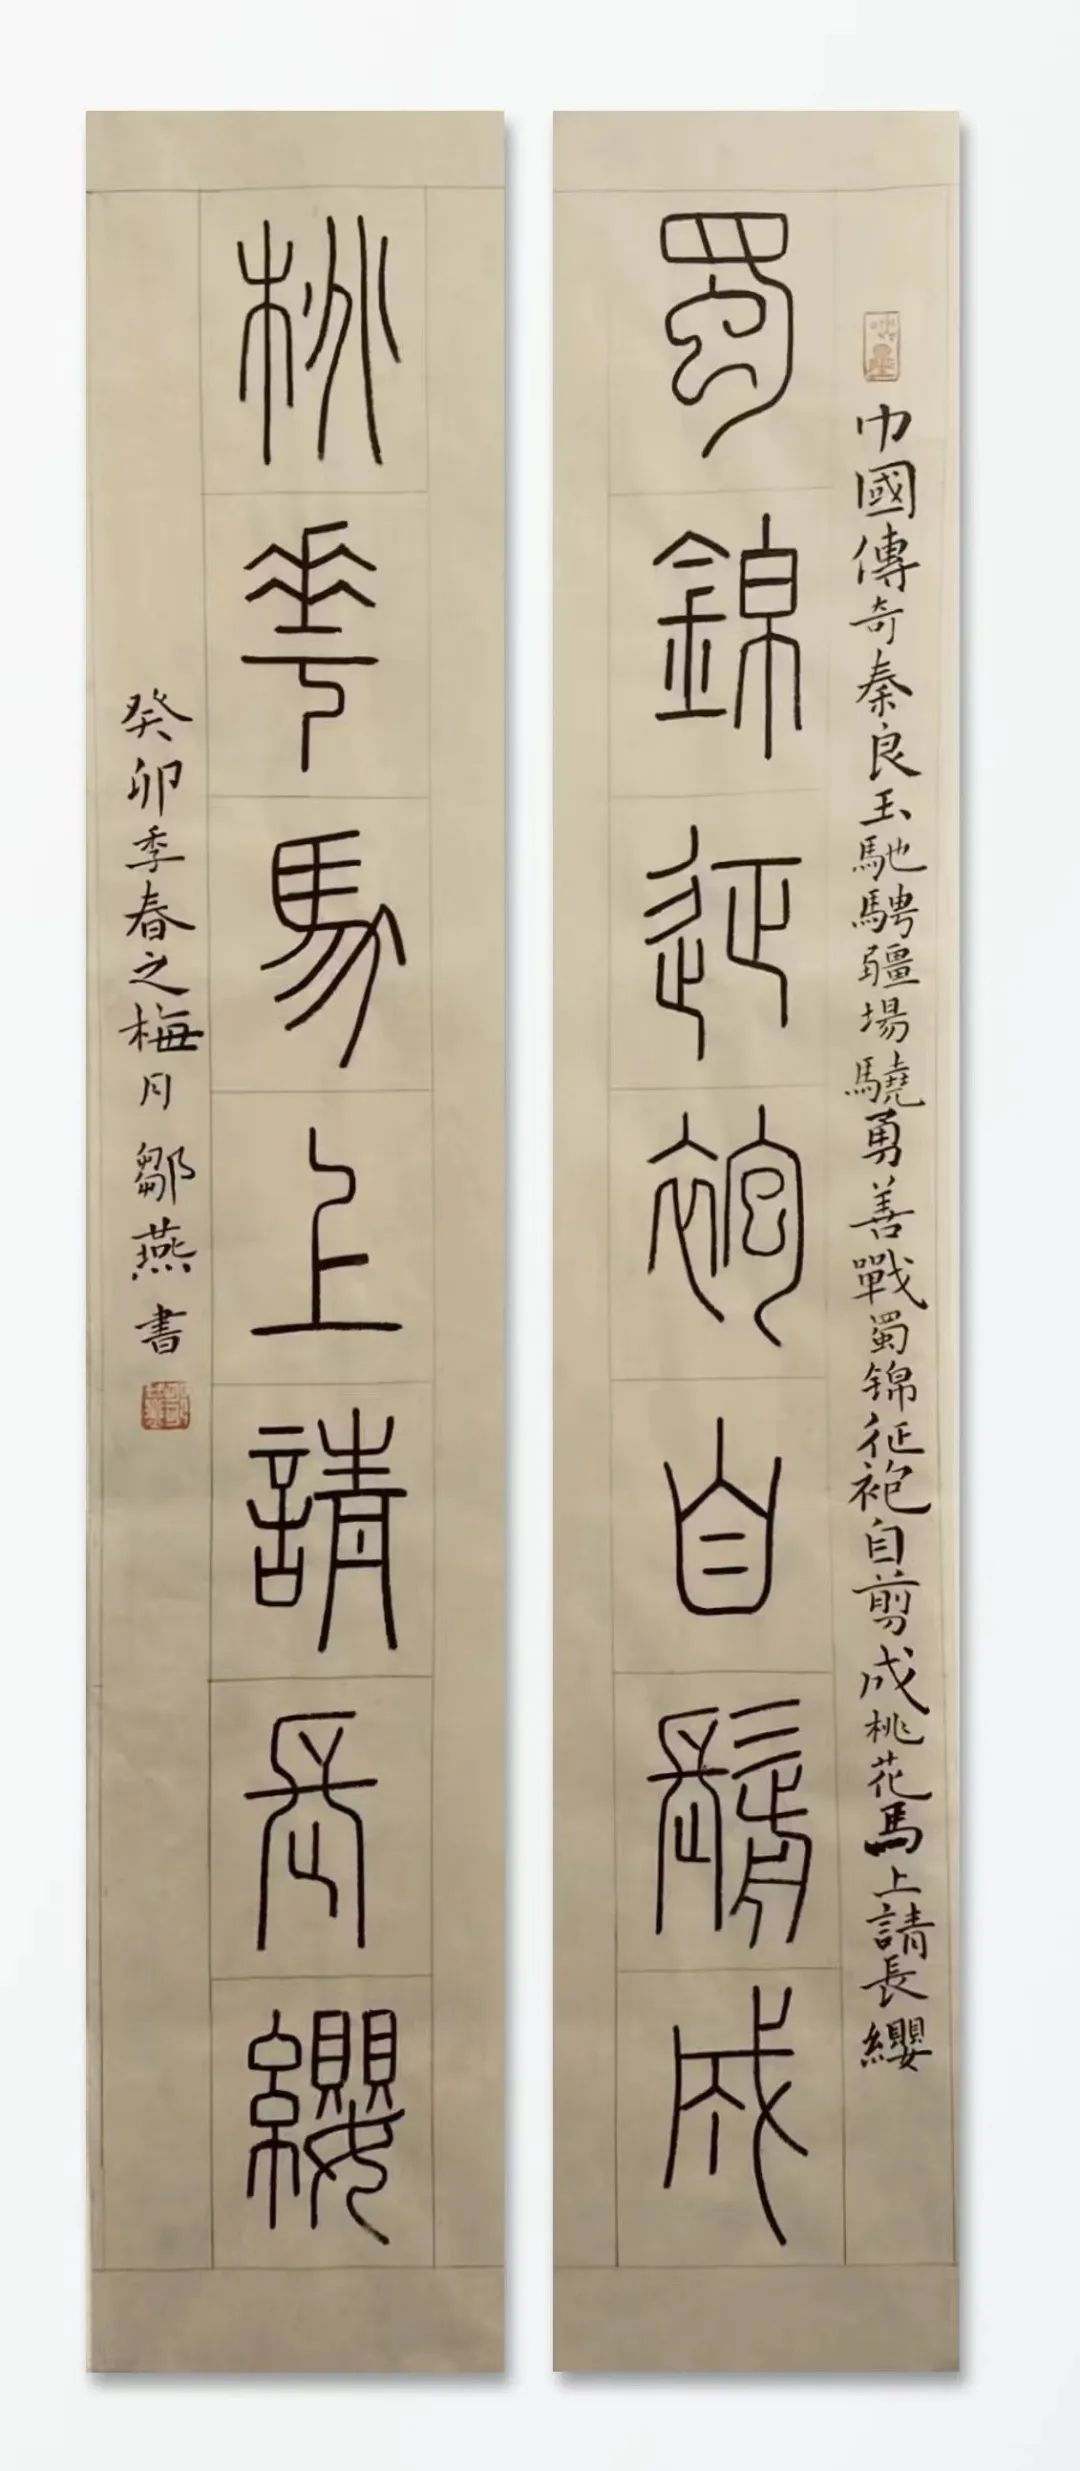 巾國傳奇秦良玉馳騁疆場驍勇善戰蜀锦征袍自剪成桃花馬上請長纓
蜀錦征袍自鬋成
桃華馬上請長纓
癸卯季春之梅月鄒燕書